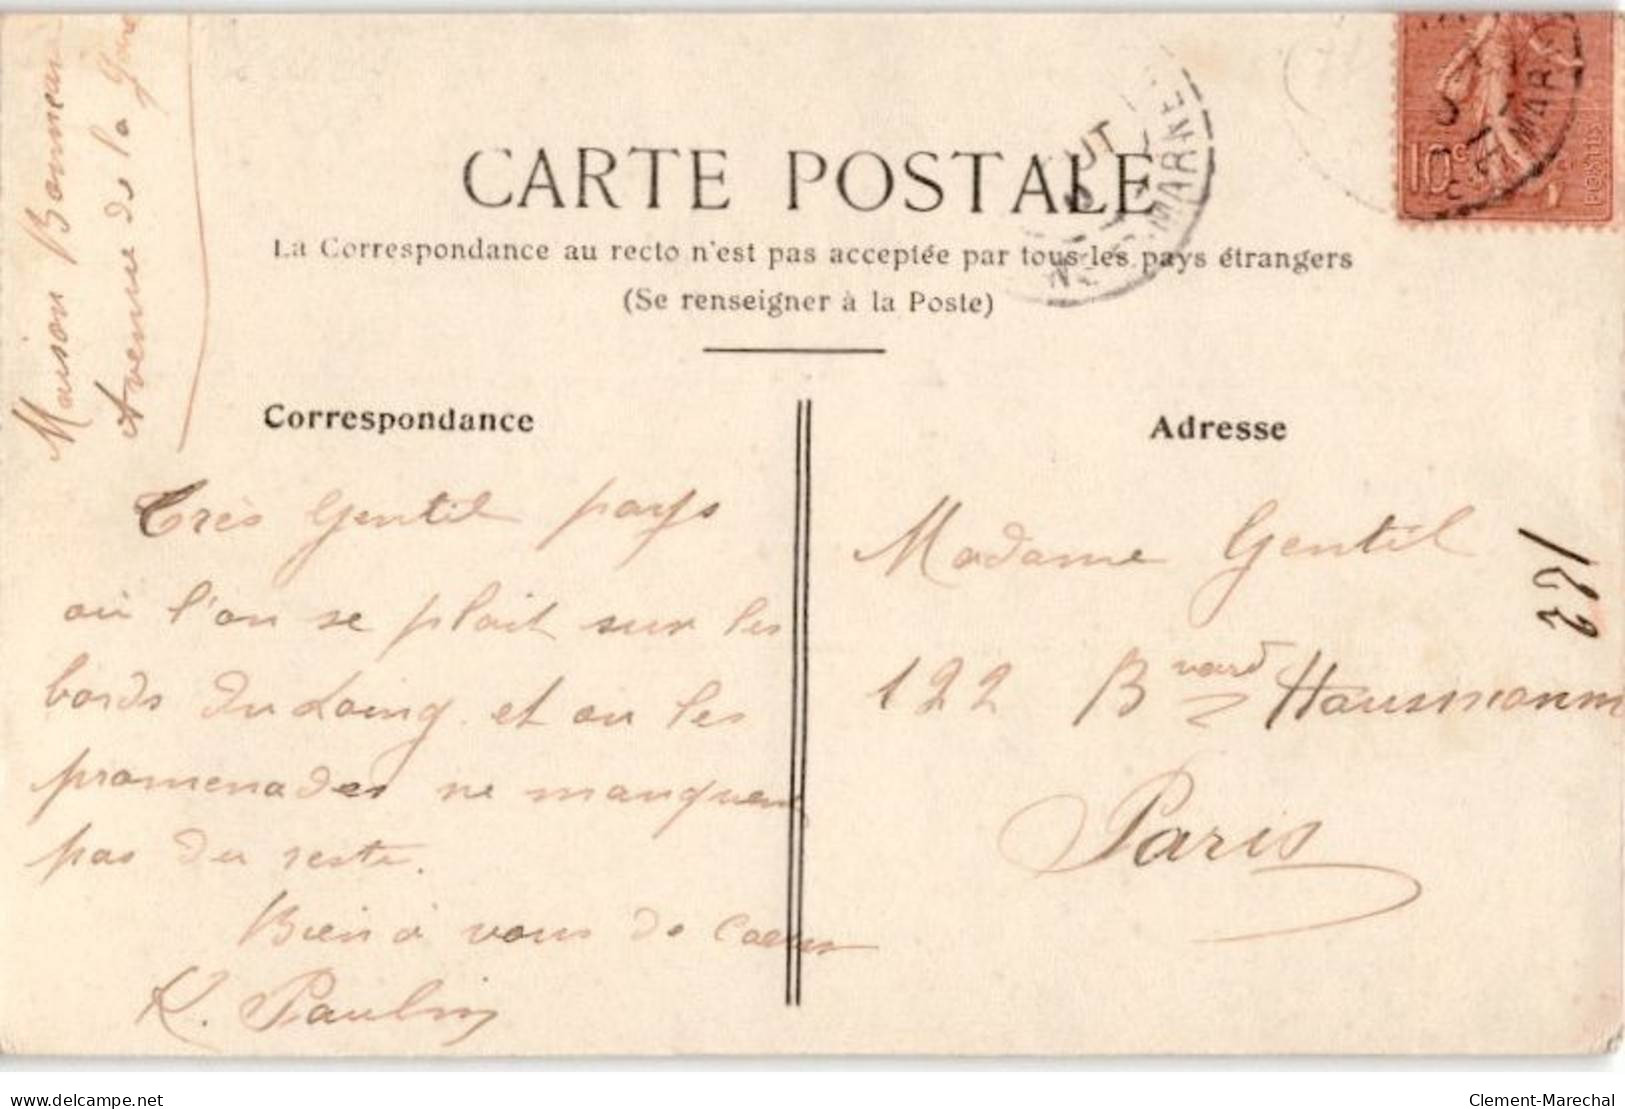 Maison Bonneau
Avenue de la Gare
CARTE POSTALE
La Correspondance au recto n'est pas acceptée par tous les pays étrangers
(Se renseigner à la Poste)
Correspondance
Adresse
10c
POSTES
OUT
MARNE
MARN
Très Gentil pays
où l'on se plait sur les
bords du Loing et où les
promenades ne manquent
pas du reste.
Bien à vous de Coeur
K. Paulin
Madame Gentil
122 Bvard Hausmann
Paris
delcampe.net
Clement-Marechal